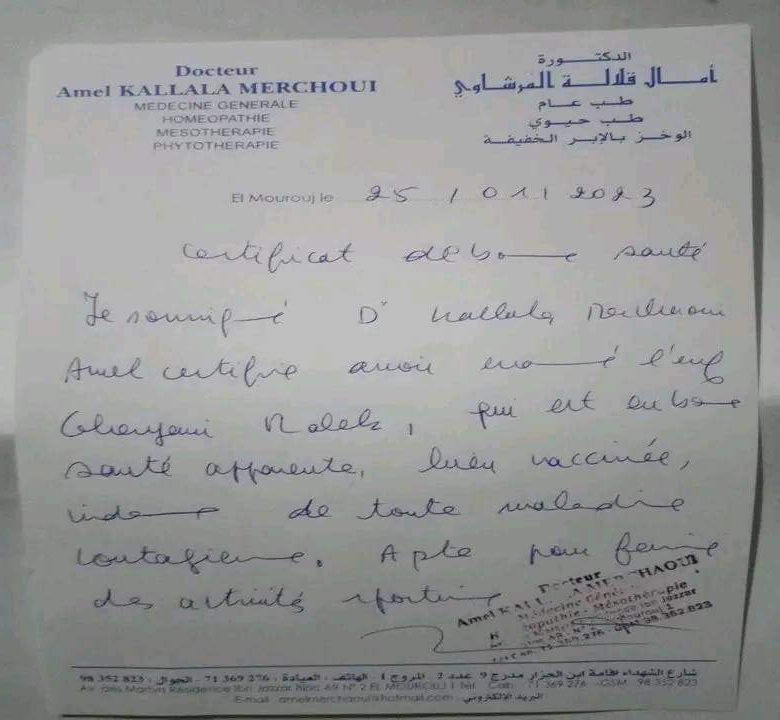 Docteur
Amel KALLALA MERCHOUI
MEDECINE GENERALE
HOMEOPATHIE
MESOTHERAPIE
PHYTOTHERAPIE
الدكتورة
أمال قلالة المرشاوي
طب عام
طب حيوي
الوخز بالإبر الخفيفة
El Mourouj le 25 / 01 / 2023
Certificat de bonne santé
Je soussigné Dr Kallala Merchaoui
Amel certifie avoir examiné l'enf
Malek, qui est en bonne
santé apparente, bien vaccinée,
indemne de toute maladie
contagieuse. Apte pour faire
des activités sportives
Docteur
Médecine Géné
Mésothérapie
98.352.823
شارع الشهداء اقامة ابن الجزار مدرج 9 عدد 2 المروج 1 الهاتف : العيادة : 71 369 276 - الجوال : 98 352 823
Av. des Martyrs Résidence Ibn Jazzar Bloc A9 N° 2 EL MOUROUJ I Tél. Cab. : 71 369 276 - GSM : 98 352 823
E-mail : amelmerchaoui@hotmail.com : البريد الإلكتروني